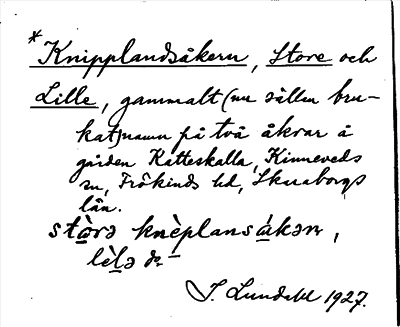 *Knipplandsåkern, Store och
Lille, gammalt (nu sällan bru-
kat) namn på två åkrar å
gården Kätteskalla, Kinneveds
sn, Frökinds hd, Skaraborgs
län.
stòrə knèplansákər,
lèlə d:-
J. Lundahl 1927.